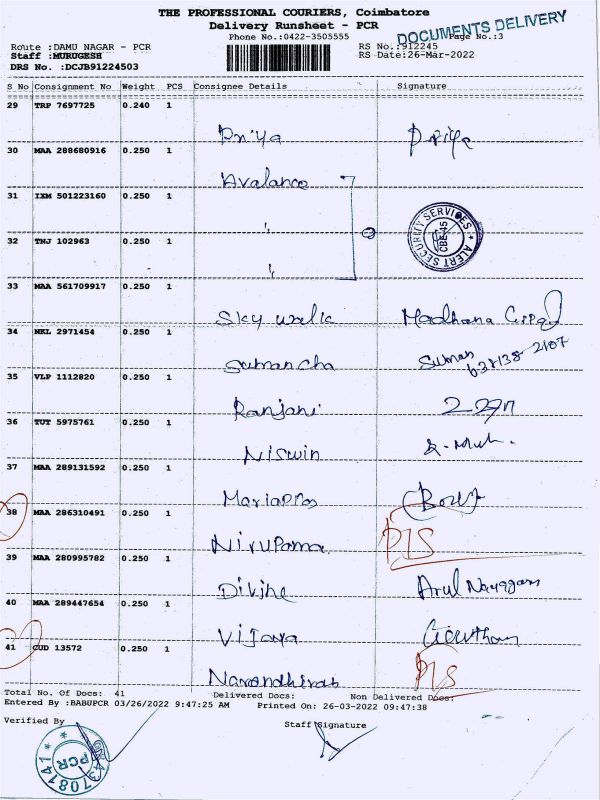 THE PROFESSIONAL COURIERS, Coimbatore
Delivery Runsheet - PCR
Phone No.:0422-3505555
DOCUMENTS DELIVERY
Page No.:3
Route :DAMU NAGAR - PCR
RS No.:912245
Staff :MURUGESH
RS Date:26-Mar-2022
DRS No. :DCJB91224503
S No Consignment No Weight PCS Consignee Details Signature
29 TRP 7697725 0.240 1
Priya Priya
30 MAA 288680916 0.250 1
Avalance
31 IXM 501223160 0.250 1
"
ALERT SECURITY SERVICES CBE-45
32 TNJ 102963 0.250 1
"
33 MAA 561709917 0.250 1
Sky walk Madhana
34 NKL 2971454 0.250 1
Suman cha Suman
35 VLP 1112820 0.250 1
Ranjani
36 TUT 5975761 0.250 1
Niswin
37 MAA 289131592 0.250 1
38 MAA 286310491 0.250 1
Nirupama
39 MAA 280995782 0.250 1
Divine Arul Nayagam
40 MAA 289447654 0.250 1
Vijaya Gowtham
41 CUD 13572 0.250 1
Total No. Of Docs: 41 Delivered Docs: Non Delivered Docs:
Entered By :BABUPCR 03/26/2022 9:47:25 AM Printed On: 26-03-2022 09:47:38
Verified By Staff Signature
PCR